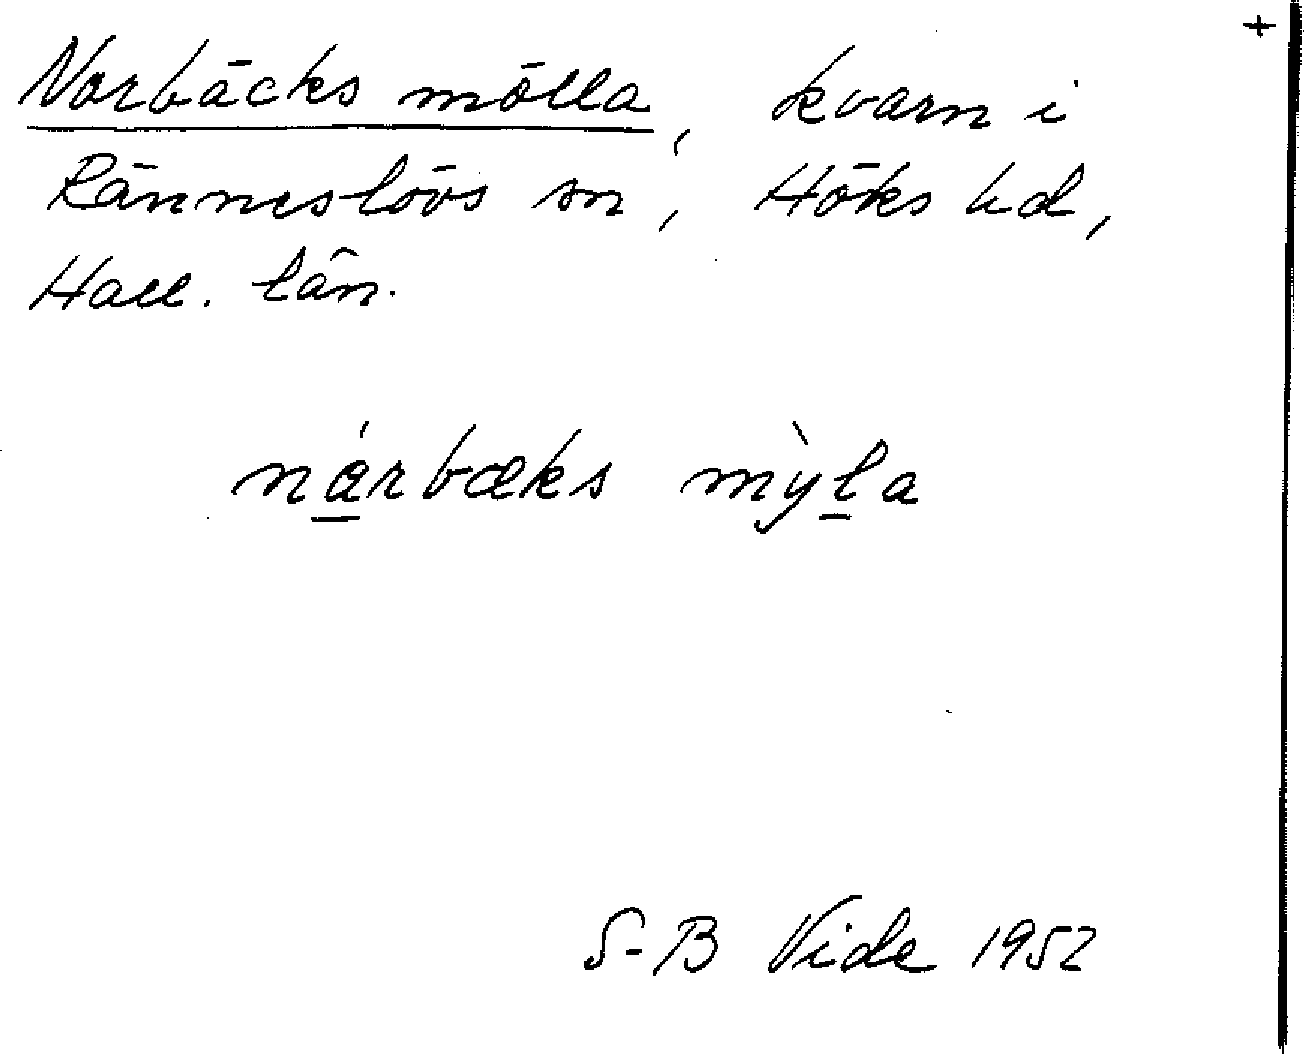 +
Norbäcks mölla, kvarn i
Ränneslövs sn, Höks hd,
Hall. län.
nárbæks mỳla
S-B Vide 1952